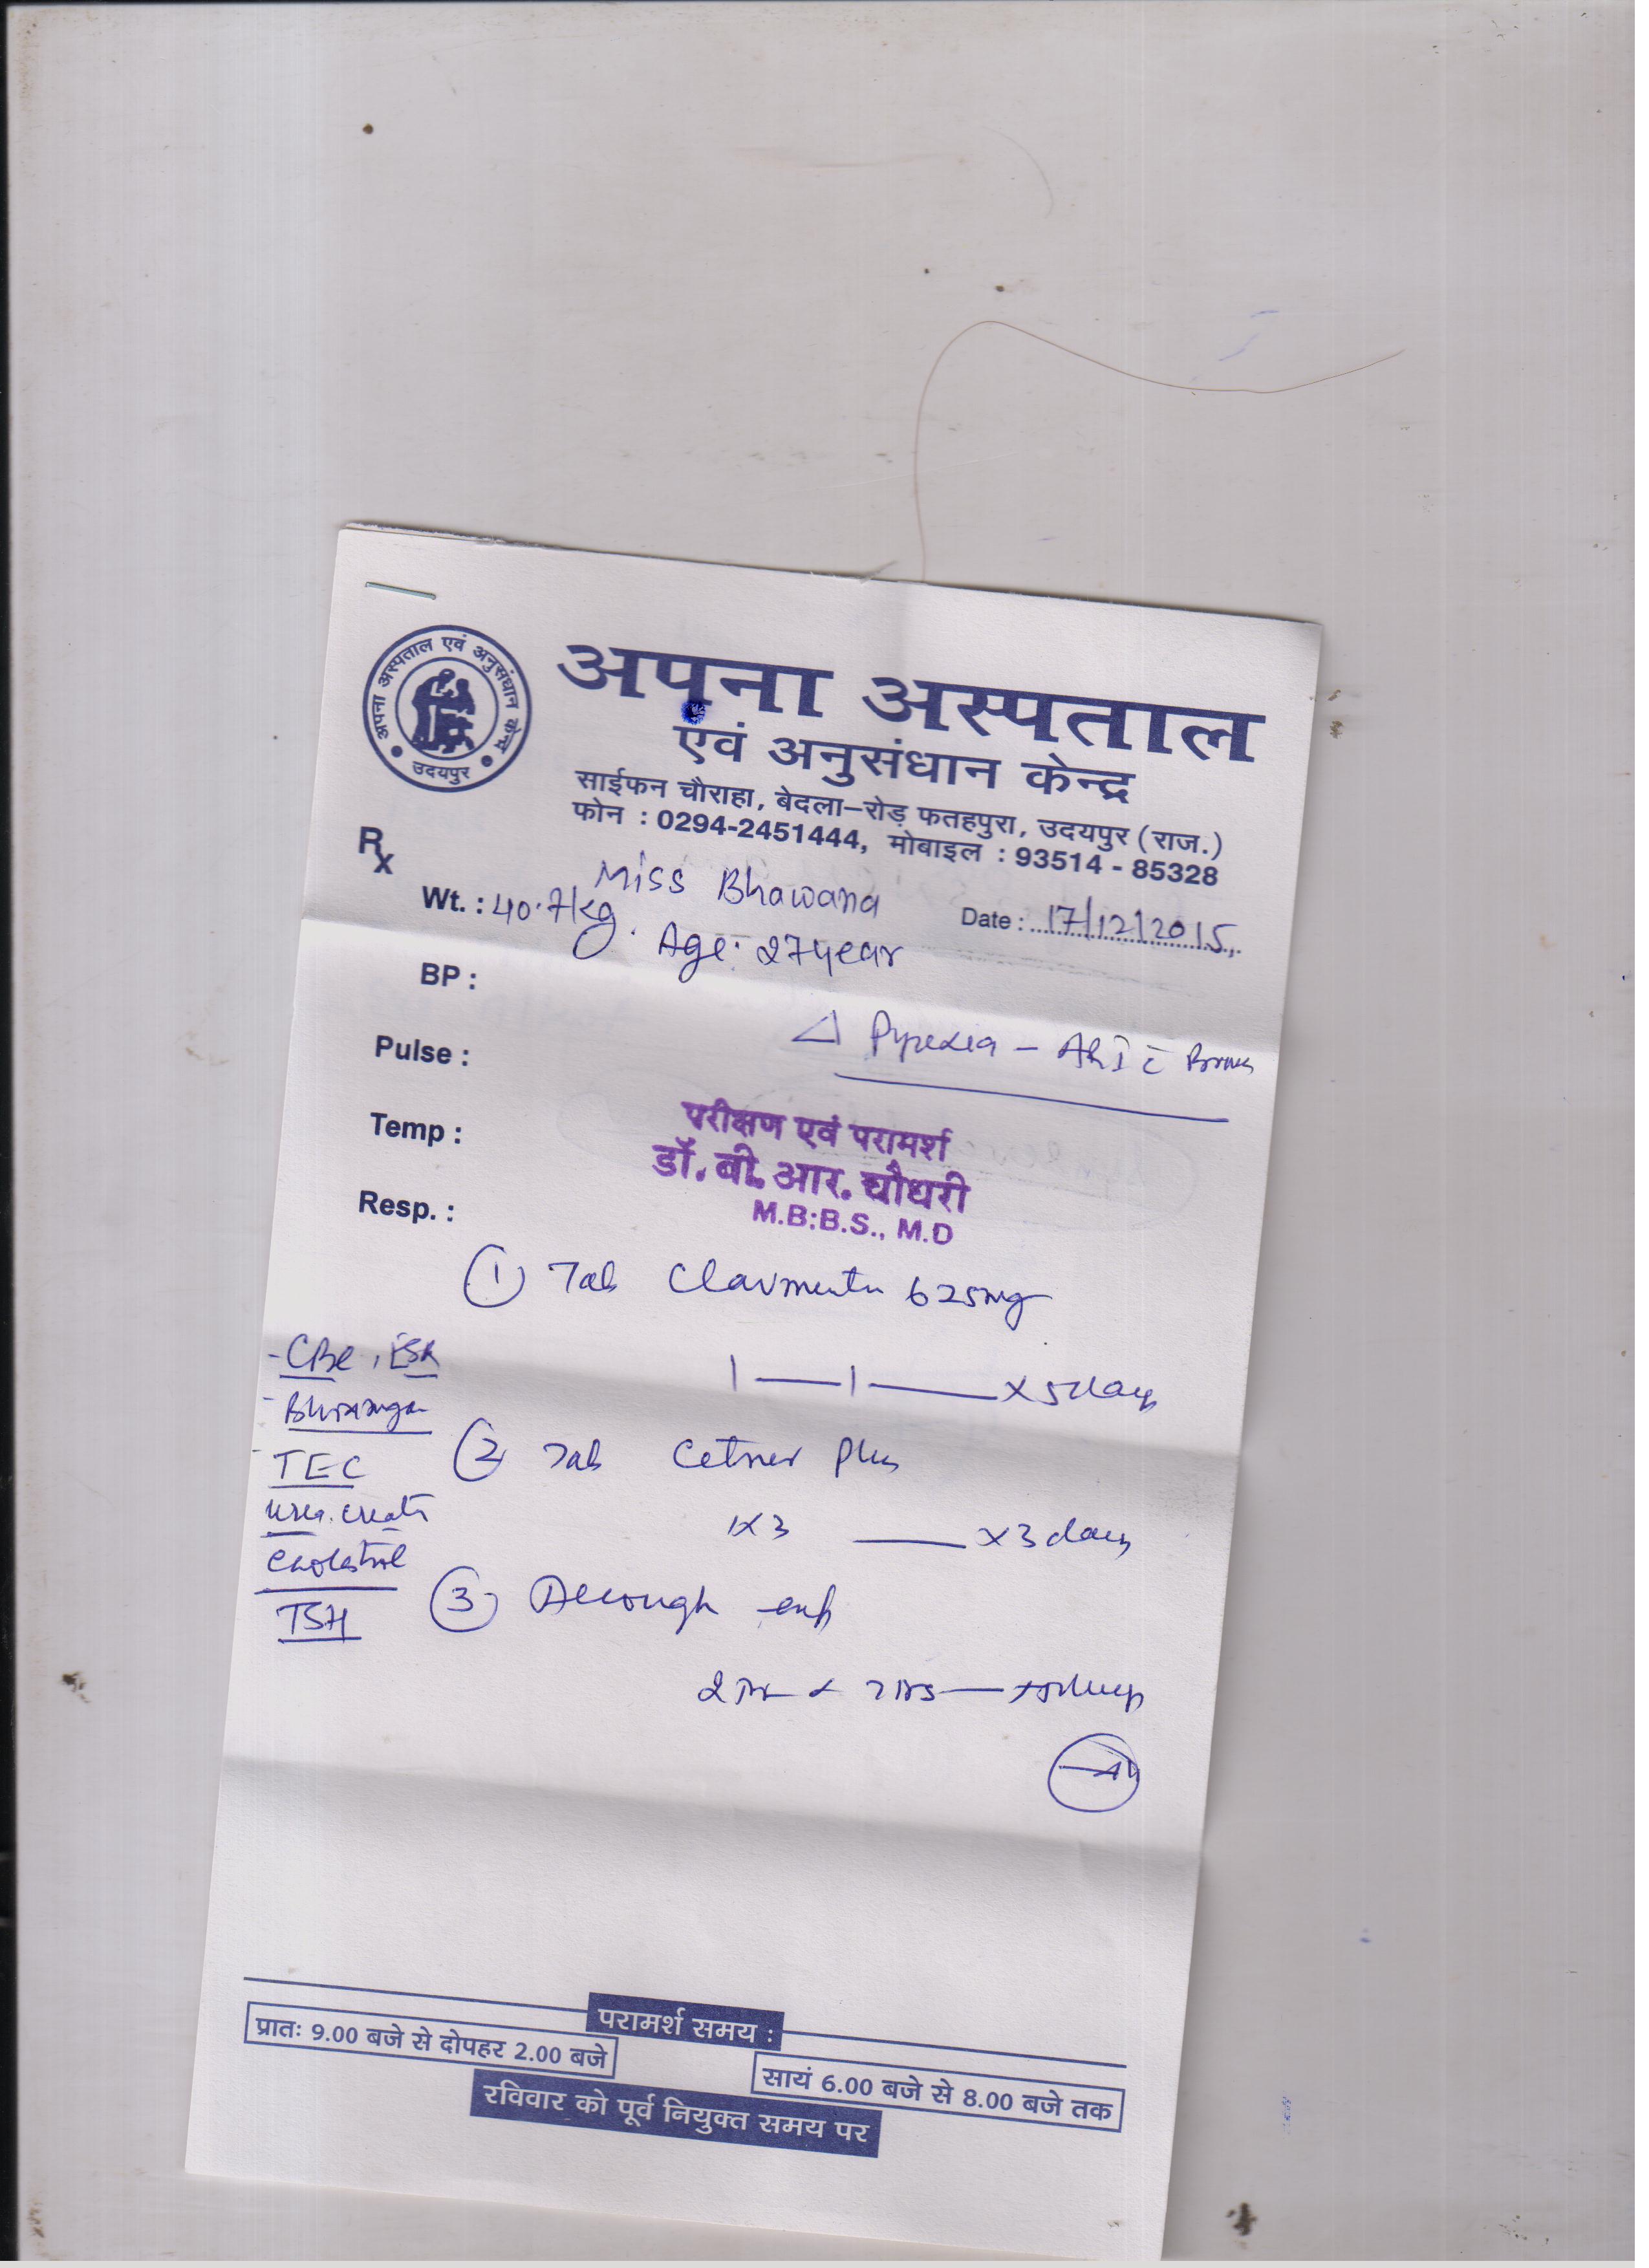 अपना अस्पताल एवं अनुसंधान केन्द्र
उदयपुर
अपना अस्पताल
एवं अनुसंधान केन्द्र
साईफन चौराहा, बेदला–रोड़ फतहपुरा, उदयपुर (राज.)
फोन : 0294-2451444, मोबाइल : 93514 - 85328
Rx
Miss Bhawana
Wt. : 40.7kg.
Date : 17/12/2015
Age: 27 year
BP :
Δ Pyrexia –
Pulse :
Temp :
परीक्षण एवं परामर्श
डॉ. बी. आर. चौधरी
M.B:B.S., M.D
Resp. :
① Tab 625mg
1 — 1 — x 5 days
- CBC, ESR
-
② Tab Plus
- TEC
1x3 — x 3 days
urea.
TSH
③
परामर्श समय :
प्रातः 9.00 बजे से दोपहर 2.00 बजे
सायं 6.00 बजे से 8.00 बजे तक
रविवार को पूर्व नियुक्त समय पर